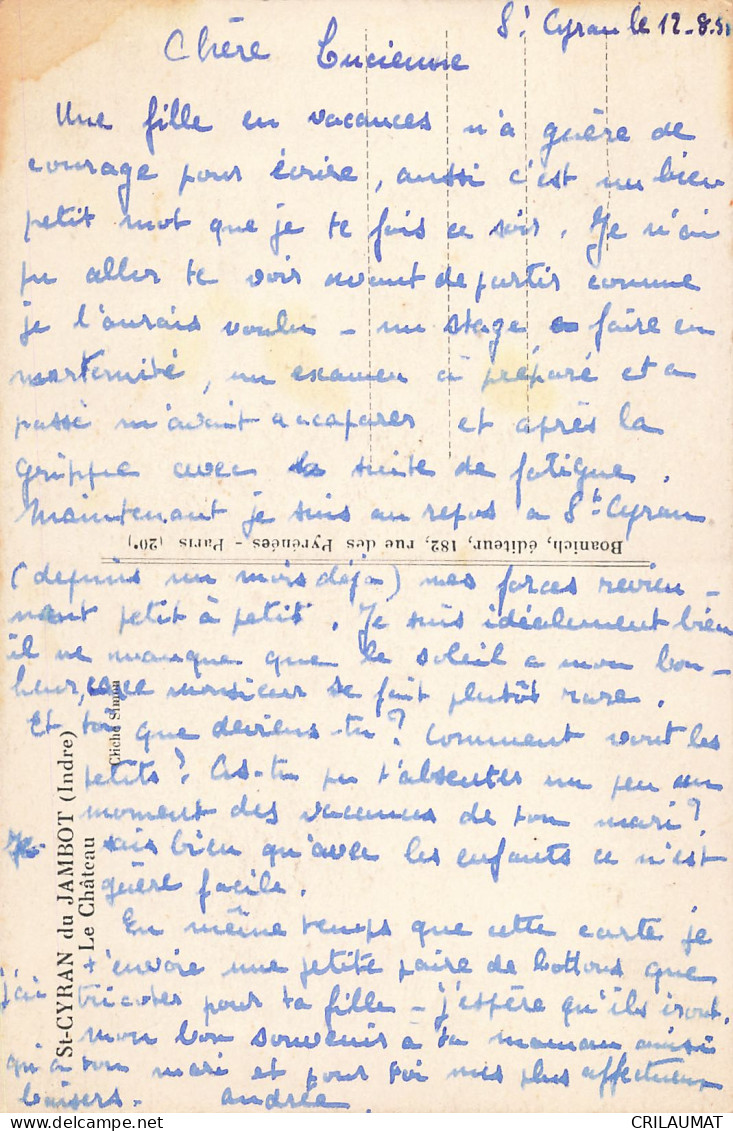 St Cyran le 12-8-51
Chère Lucienne
Une fille en vacances n'a guère de
courage pour écrire, aussi c'est un bien
petit mot que je te fais ce soir. Je n'ai
pu aller te voir avant de partir comme
je l'aurais voulu - un stage a faire en
maternité, un examen à préparé et a
passé m'avait accaparer et après la
grippe avec sa suite de fatigue.
Maintenant je suis au repos a St Cyran
Boanich, éditeur, 182, rue des Pyrénées - Paris (20e)
(depuis un mois déjà) mes forces revien-
nent petit à petit. Je suis idéalement bien
il ne manque que le soleil a mon bon-
heur, ce monsieur se fait plutôt rare.
Et toi que deviens-tu? Comment vont les
petits? As-tu pu t'absenter un peu au
moment des vacances de ton mari?
Je sais bien qu'avec les enfants ce n'est
guère facile.
En même temps que cette carte je
t'envoie une petite paire de bottons que
j'ai tricotés pour ta fille - j'espère qu'ils iront.
mon bon souvenir à ta maman ainsi
qu'a ton mari et pour toi mes plus affectueux
baisers - andrée
St-CYRAN du JAMBOT (Indre)
Le Château
Cliché Simon
CRILAUMAT